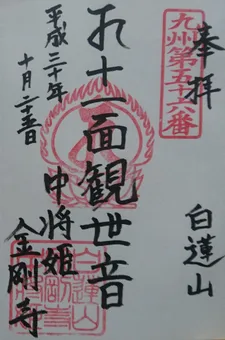 奉拝
九州第五十六番
白蓮山
十一面観世音
中将姫
金剛寺
平成三十年
十月二十五日